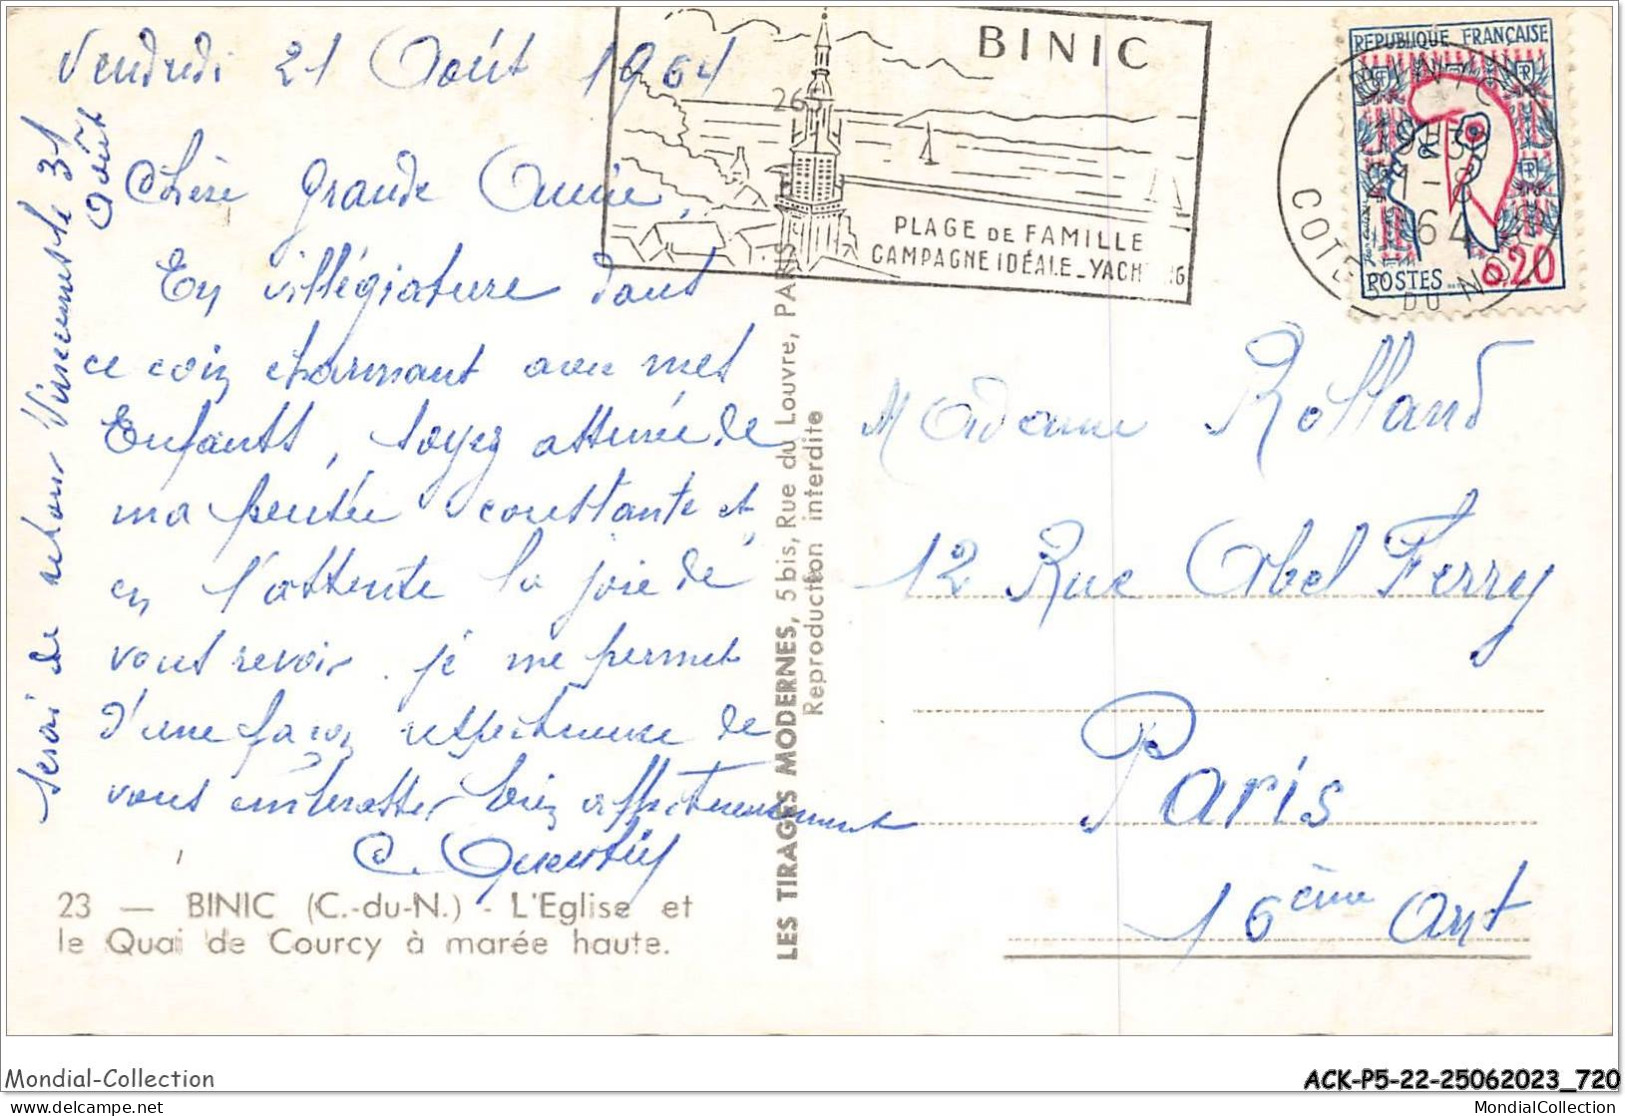 Vendredi 21 Août 1964
Chère Grande Amie,
En villégiature dans
ce coin charmant avec mes
Enfants, soyez assurée de
ma pensée constante et,
en l'attente la joie de
vous revoir. je me permet
d'une façon respectueuse de
vous embrasser bien affectueusement
C. Quentin
serai de retour Vincennes le 31
Août
23 — BINIC (C.-du-N.) - L'Eglise et
le Quai de Courcy à marée haute.
LES TIRAGES MODERNES, 5 bis, Rue du Louvre, PARIS
Reproduction interdite
265
BINIC
PLAGE DE FAMILLE
CAMPAGNE IDÉALE_YACHTING
REPUBLIQUE FRANÇAISE
POSTES
0,20
BINIC
COTES DU NORD
1964
Madame Rolland
12 Rue Abel Ferry
Paris
16ème Arrt
Mondial-Collection
ACK-P5-22-25062023_720
delcampe.net
MondialCollection